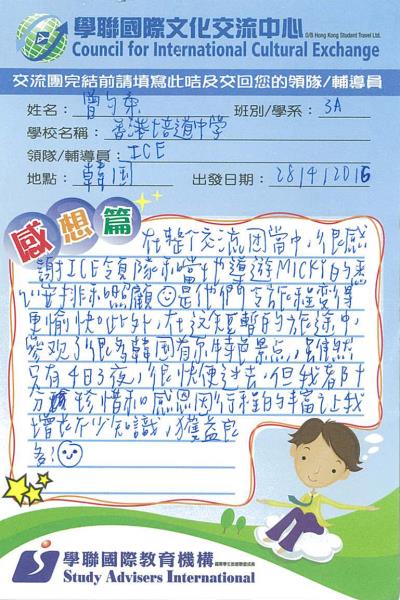 學聯國際文化交流中心
D/B Hong Kong Student Travel Ltd.
Council for International Cultural Exchange
交流團完結前請填寫此咭及交回您的領隊/輔導員
姓名：曾 東 班別/學系：3A
學校名稱：香港培道中學
領隊/輔導員：ICE
地點：韓国 出發日期：28/4/2016
感想篇
在整个交流团當中，很感
謝ICE領隊和當地導游MICKY的悉
心安排和照顧☺是他們令旅程变得
更愉快。此外，在这短暫的旅途中，
參观了很多韓國有示特色景点，虽然
只有4日3夜，很快便过去，但我都十
分珍惜和感恩。因行程的丰富，让我
增長不少知識，獲益良
多！☺
學聯國際教育機構
Study Advisers International